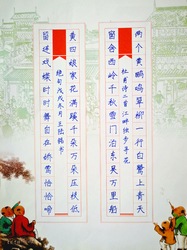 两个黄鹂鸣翠柳一行白鹭上青天
杜甫诗二首江畔独步寻花
窗含西岭千秋雪门泊东吴万里船
黄四娘家花满蹊千朵万朵压枝低
绝句戊戌冬月王陆韩书
留连戏蝶时时舞自在娇莺恰恰啼